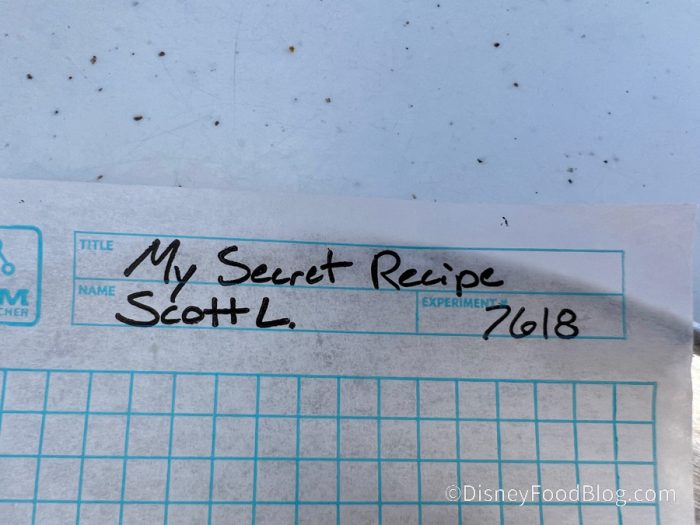 TITLE My Secret Recipe
NAME Scott L. EXPERIMENT # 7618
M
CHER
©DisneyFoodBlog.com